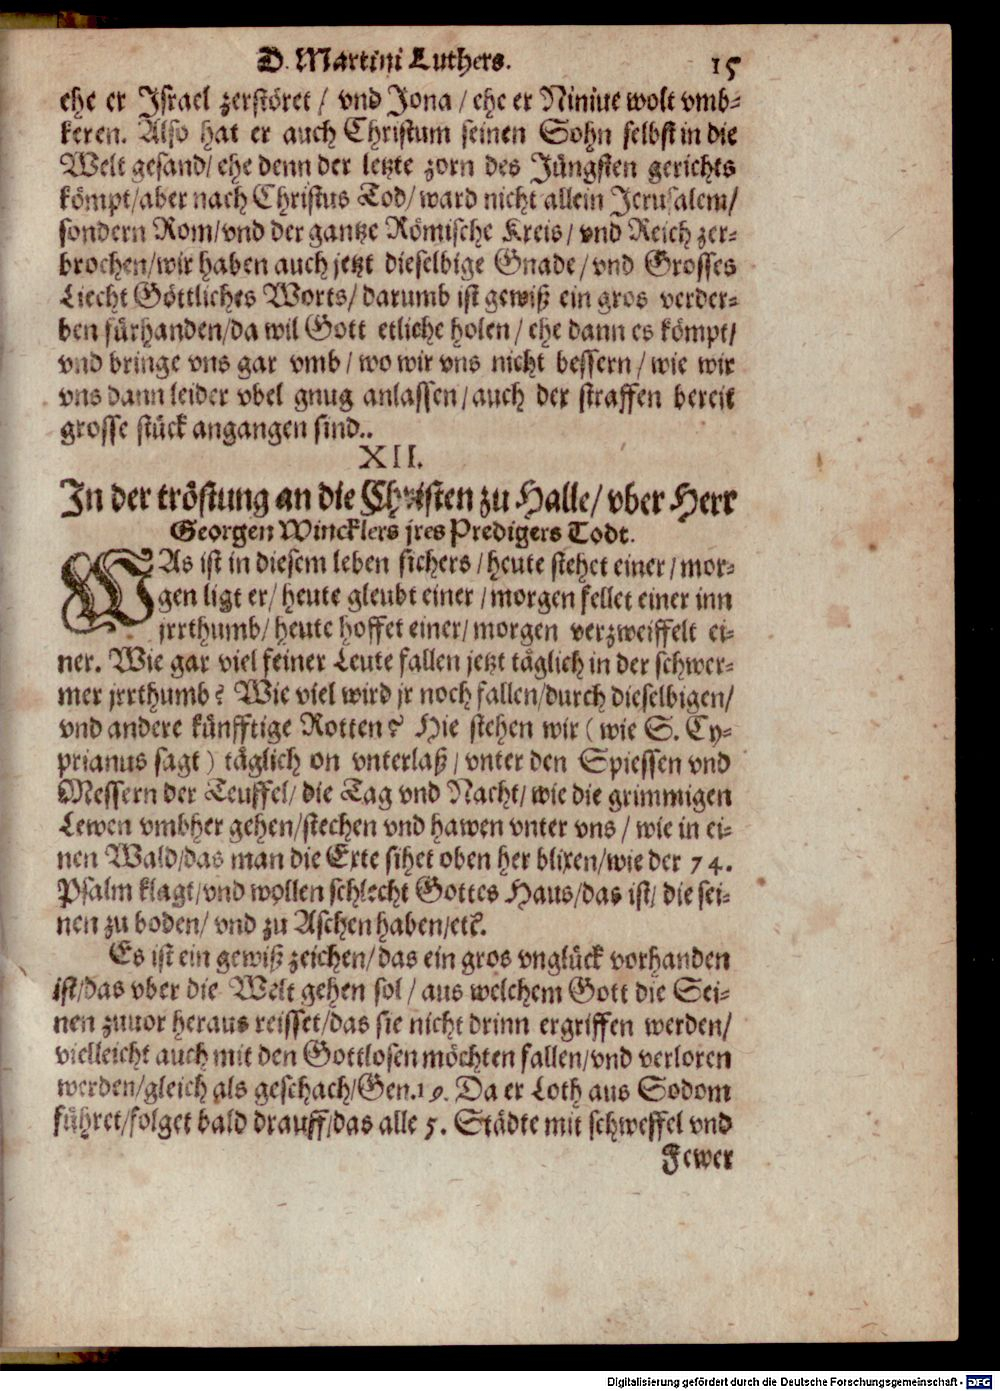 D. Martini Luthers. 15
ehe er Israel zerstöret / vnd Jona / ehe er Niniue wolt vmb-
keren. Also hat er auch Christum seinen Sohn selbst in die
Welt gesand/ ehe denn der letzte zorn des Jüngsten gerichts
kömpt/aber nach Christus Tod/ ward nicht allein Jerusalem/
sondern Rom/vnd der gantze Römische Kreis/ vnd Reich zer-
brochen/wir haben auch jetzt dieselbige Gnade/ vnd Grosses
Liecht Göttliches Worts/ darumb ist gewiß ein gros verder-
ben fürhanden/da wil Gott etliche holen / ehe dann es kömpt/
vnd bringe vns gar vmb / wo wir vns nicht bessern / wie wir
vns dann leider vbel gnug anlassen/auch der straffen bereit
grosse stück angangen sind..
XII.
In der tröstung an die Christen zu Halle/ vber Herr
Georgen Wincklers jres Predigers Todt.
WAs ist in diesem leben sichers /heute stehet einer/ mor-
gen ligt er/ heute gleubt einer / morgen fellet einer inn
jrrthumb/ heute hoffet einer/ morgen verzweiffelt ei-
ner. Wie gar viel feiner Leute fallen jetzt täglich in der schwer-
mer jrrthumb? Wie viel wird jr noch fallen/durch dieselbigen/
vnd andere künfftige Rotten? Hie stehen wir ( wie S. Cy-
prianus sagt ) täglich on vnterlaß/ vnter den Spiessen vnd
Messern der Teuffel/ die Tag vnd Nacht/ wie die grimmigen
Lewen vmbher gehen/stechen vnd hawen vnter vns / wie in ei-
nen Wald/das man die Exte sihet oben her blixen/wie der 74.
Psalm klagt/vnd wollen schlecht Gottes Haus/das ist/ die sei-
nen zu boden/ vnd zu Aschen haben/etc.
Es ist ein gewiß zeichen/ das ein gros vnglück vorhanden
ist/das vber die Welt gehen sol / aus welchem Gott die Sei-
nen zuuor heraus reisset/das sie nicht drinn ergriffen werden/
vielleicht auch mit den Gottlosen möchten fallen/vnd verloren
werden/gleich als geschach/Gen.19. Da er Loth aus Sodom
führet/folget bald drauff/das alle 5. Städte mit schweffel vnd
Fewer
Digitalisierung gefördert durch die Deutsche Forschungsgemeinschaft - DFG